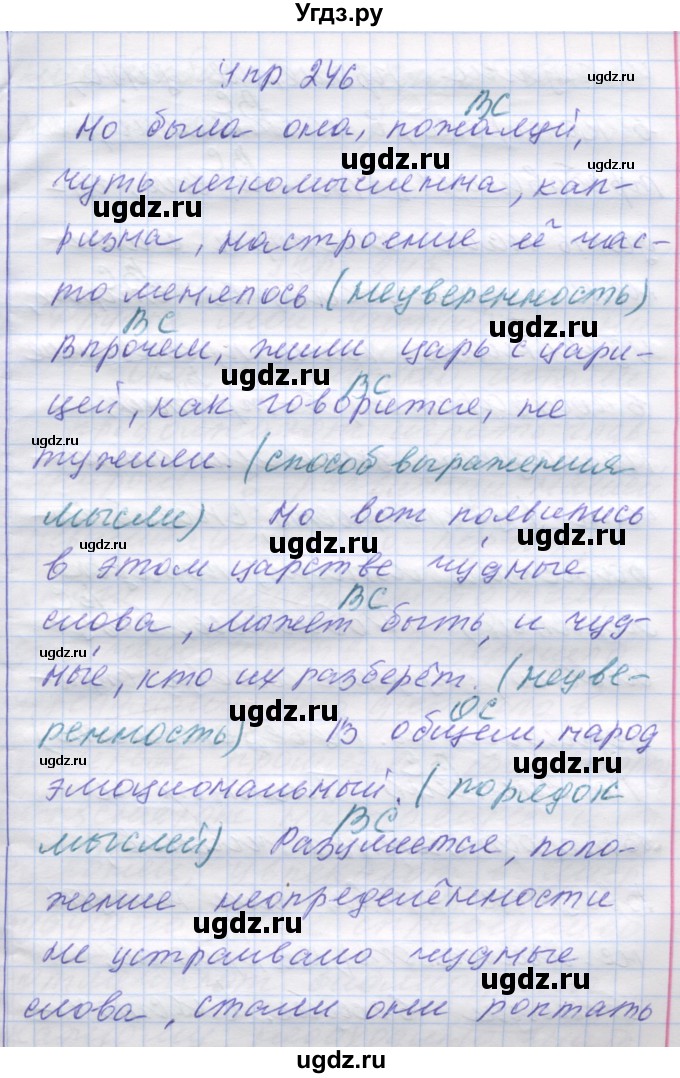 Угдз.ру
Упр 246
ugdz.ru
ВС
Но была она, пожалуй,
ugdz.ru
чуть легкомысленна, кап-
ugdz.ru
ризна, настроение её час-
то менялось (неуверенность)
ВС
ugdz.ru
Впрочем, жили царь с цари-
ugdz.ru
ВС
цей, как говорится, не
ugdz.ru
тужили. (способ выражения
мысли) Но вот появились
ugdz.ru
ugdz.ru
ugdz.ru
в этом царстве чудные
ВС
слова, может быть, и чуд-
ugdz.ru
ugdz.ru
ные, кто их разберёт. (неуве-
ugdz.ru
ВС
ренность) В общем, народ
ugdz.ru
ugdz.ru
эмоциональный. (порядок
ВС
мыслей) Разумеется, поло-
ugdz.ru
жение неопределённости
ugdz.ru
не устраивало чудные
ugdz.ru
слова, стали они роптать
ugdz.ru
ugdz.ru